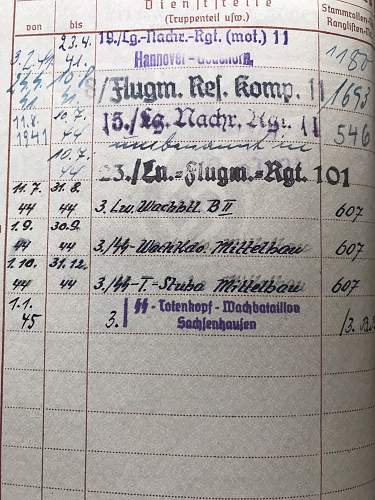 Dienststelle
(Truppenteil usw.)
von bis
Stammrollen-
Ranglisten-Nr.
3.2.41 23.4.41. 19./Lg.-Nachr.-Rgt. (mot.) 11 1180
Hannover-
8/Flugm. Res. Komp. 11 1693
11.8.1941 10.7.44 15./Lg. Nachr. Rgt. 11 546
umbenannt in
10.7.44 23./Ln.-Flugm.-Rgt. 101
11.7.44 31.8.44 3. Lw. Wachbtl. B II 607
1.9.44 30.9.44 3./SS-Wachkdo Mittelbau 607
1.10.44 31.12.44 3./SS-T.-Stuba Mittelbau 607
1.1.45 3./SS-Totenkopf-Wachbataillon
Sachsenhausen